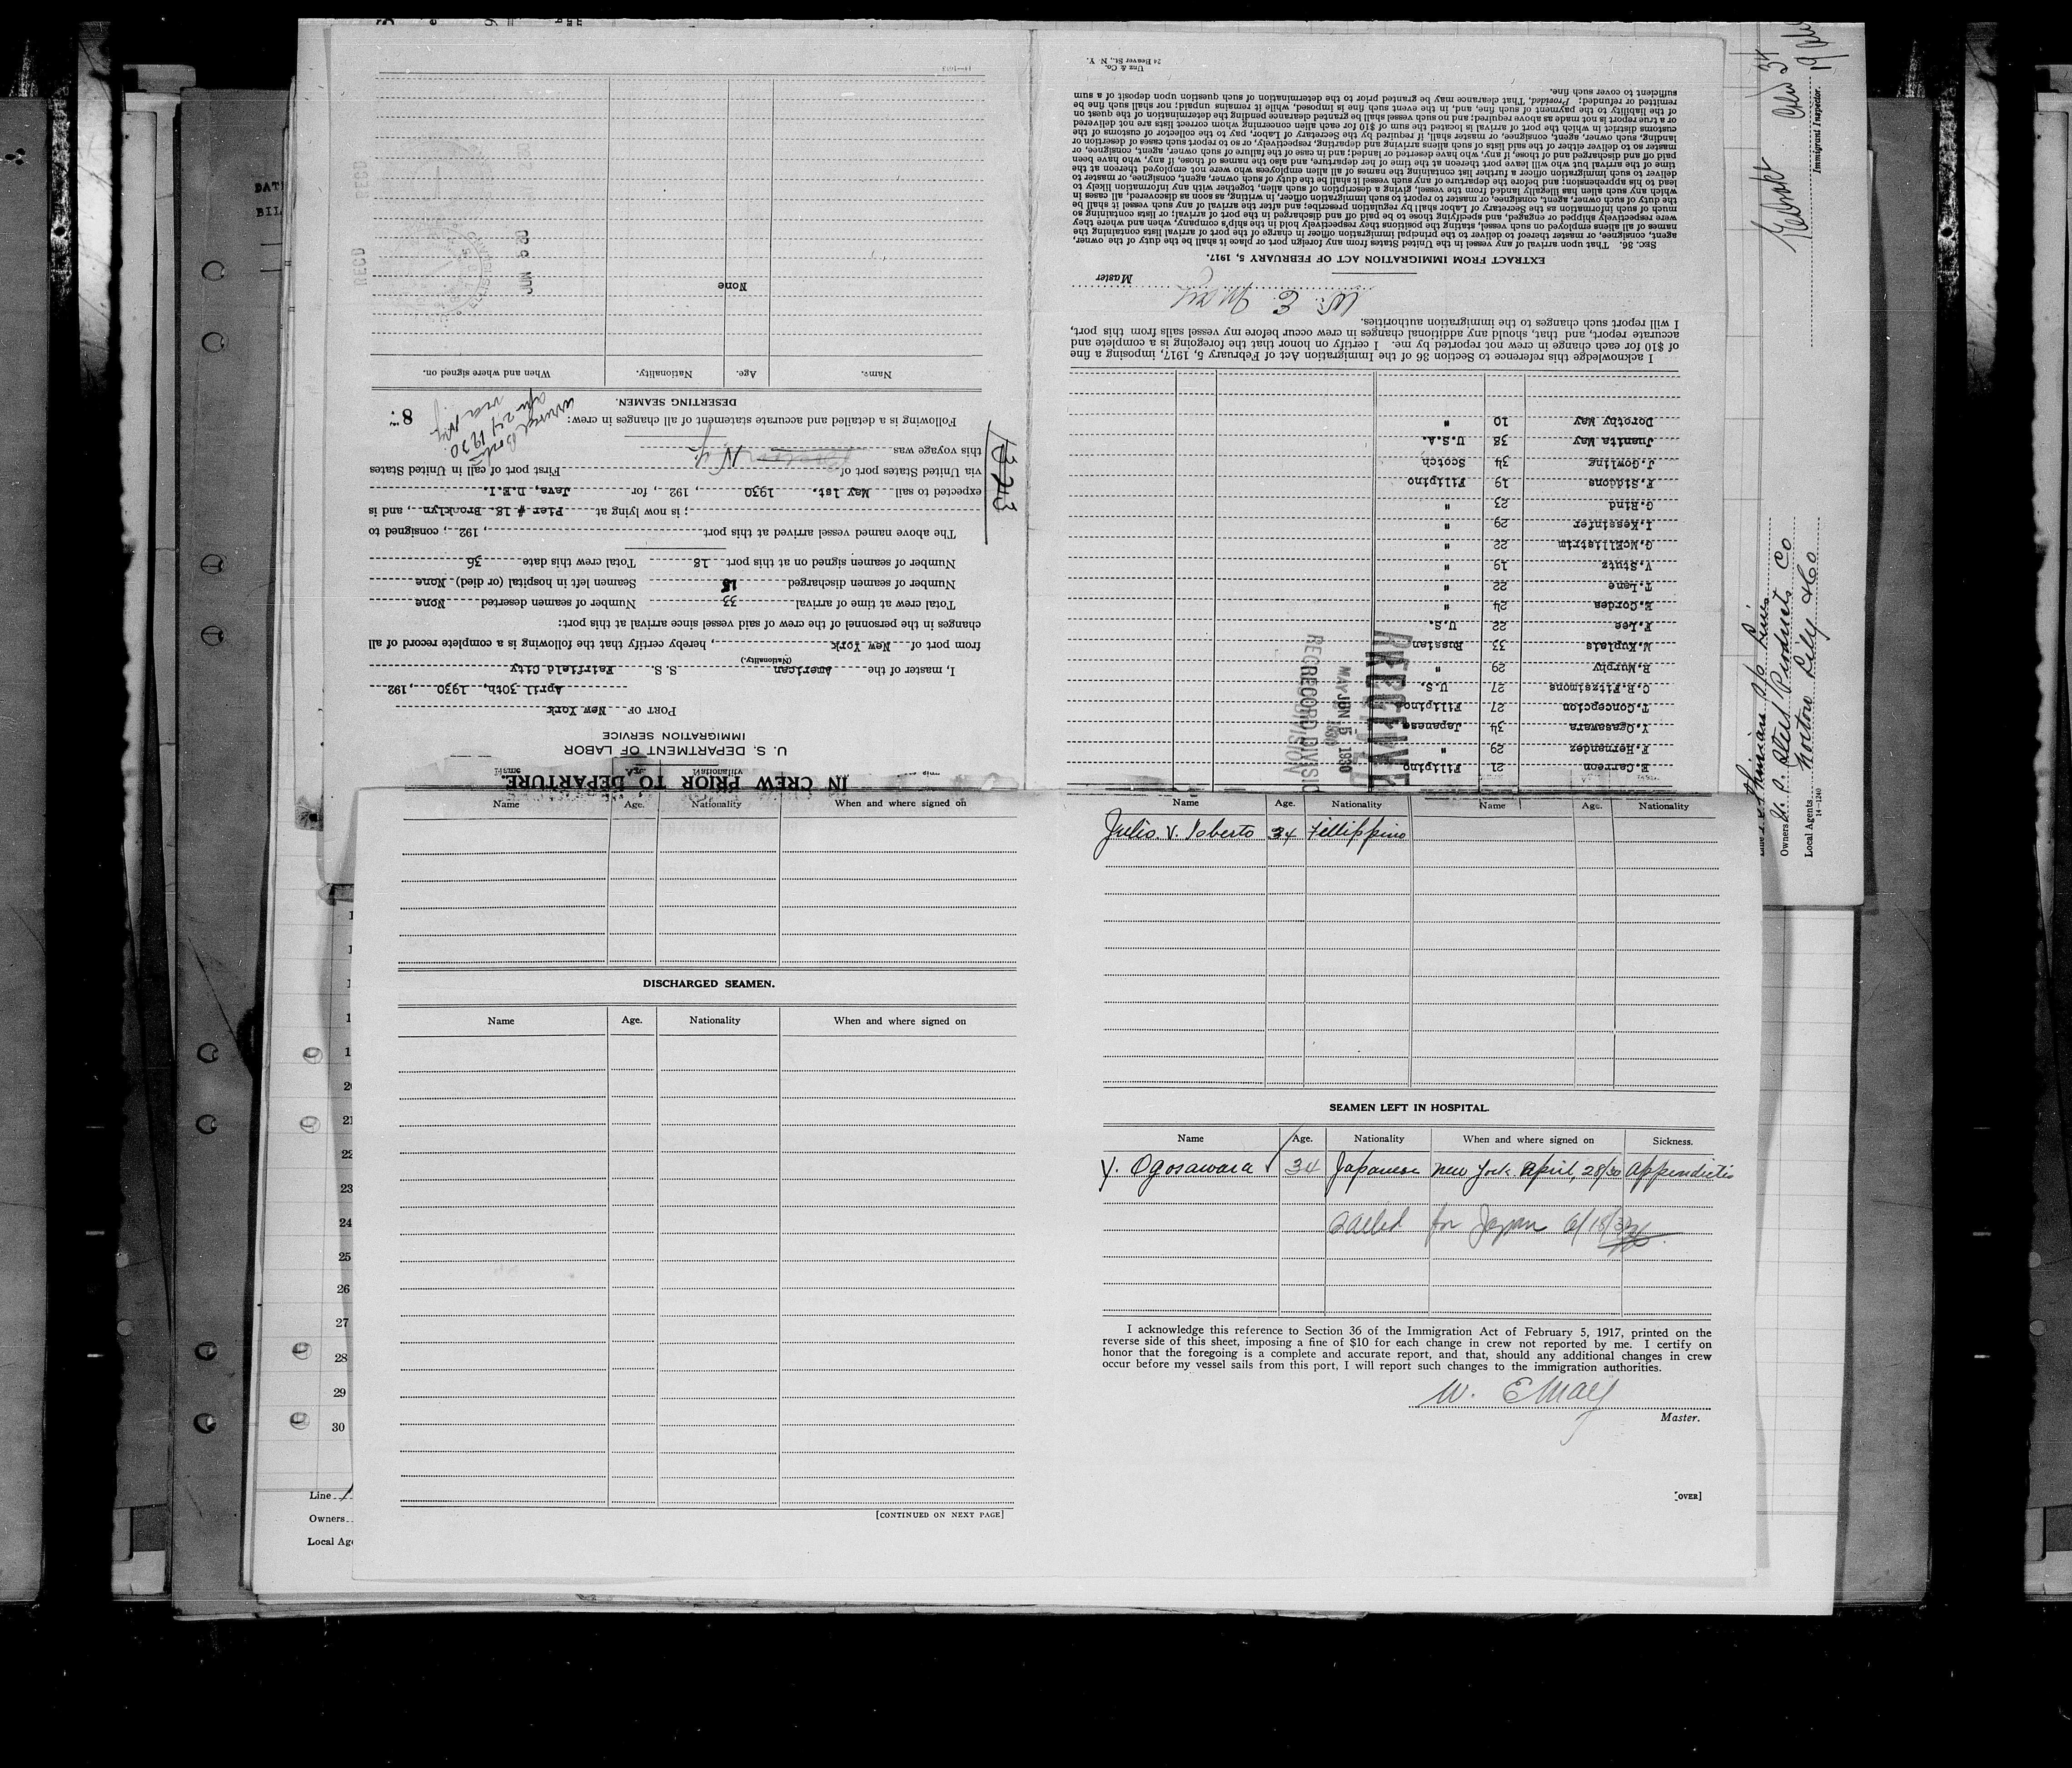 IN CREW PRIOR TO DEPARTURE.
U. S. DEPARTMENT OF LABOR
IMMIGRATION SERVICE
PORT OF New York
April 30th, 1930, 192
I, master of the American S. S. Fairfield City
(Nationality.)
from port of New York, hereby certify that the following is a complete record of all
changes in the personnel of the crew of said vessel since arrival at this port:
Total crew at time of arrival 33 Number of seamen deserted None
Number of seamen discharged 15 Seamen left in hospital (or died) None
Number of seamen signed on at this port 18 Total crew this date 36
The above named vessel arrived at this port , 192 , consigned to
; is now lying at Pier # 18. Brooklyn, and is
expected to sail May 1st. 1930 , 192 , for Java, D.E.I.
via United States port of First port of call in United States
this voyage was N.Y.
Following is a detailed and accurate statement of all changes in crew:
8
1323
DESERTING SEAMEN.
Name. Age. Nationality. When and where signed on.
None
JUN 5 30
RECD RECD
E. Carreon 21 Filipino
F. Hernandez 29 "
Y. Ogasawara 34 Japanese
T. Concepcion 27 Filipino
C.R. Fitzsimons 27 U.S.
R. Murphy 29 "
M. Kuplais 33 Russian
F. Lee 22 U.S.
E. Cordes 24 "
T. Lane 22 "
V. Stutz 19 "
G. McEllistrim 22 "
I. Kessinfer 29 "
G. Rind 23 "
F. Siddons 19 Filipino
J. Gowling 34 Scotch
Juanita May 38 U.S.A.
Dorothy May 10 "
RECEIVED
MAY
JUN 5 1930
RECORD DIVISION
I acknowledge this reference to Section 36 of the Immigration Act of February 5, 1917, imposing a fine
of $10 for each change in crew not reported by me. I certify on honor that the foregoing is a complete and
accurate report, and that, should any additional changes in crew occur before my vessel sails from this port,
I will report such changes to the immigration authorities.
W. E. May
Master
EXTRACT FROM IMMIGRATION ACT OF FEBRUARY 5, 1917.
SEC. 36. That upon arrival of any vessel in the United States from any foreign port or place it shall be the duty of the owner,
agent, consignee, or master thereof to deliver to the principal immigration officer in charge of the port of arrival lists containing the
names of all aliens employed on such vessel, stating the positions they respectively hold in the ship's company, when and where they
were respectively shipped or engaged, and specifying those to be paid off and discharged in the port of arrival; or lists containing so
much of such information as the Secretary of Labor shall by regulation prescribe; and after the arrival of any such vessel it shall be
the duty of such owner, agent, consignee, or master to report to such immigration officer, in writing, as soon as discovered, all cases in
which any such alien has illegally landed from the vessel, giving a description of such alien, together with any information likely to
lead to his apprehension; and before the departure of any such vessel it shall be the duty of such owner, agent, consignee, or master to
deliver to such immigration officer a further list containing the names of all alien employees who were not employed thereon at the
time of the arrival but who will leave port thereon at the time of her departure, and also the names of those, if any, who have been
paid off and discharged and of those, if any, who have deserted or landed; and in case of the failure of such owner, agent, consignee, or
master so to deliver either of the said lists of such aliens arriving and departing, respectively, or so to report such cases of desertion or
landing, such owner, agent, consignee, or master shall, if required by the Secretary of Labor, pay to the collector of customs of the
customs district in which the port of arrival is located the sum of $10 for each alien concerning whom correct lists are not delivered
or a true report is not made as above required; and no such vessel shall be granted clearance pending the determination of the question
of the liability to the payment of such fine, and, in the event such fine is imposed, while it remains unpaid; nor shall such fine be
remitted or refunded: Provided, That clearance may be granted prior to the determination of such question upon deposit of a sum
sufficient to cover such fine.
Unz & Co.
24 Beaver St., N. Y.
Immigrant Inspector.
Owners U. S. Steel Products Co
Local Agents Norton Lilly & Co
14—1240
DATE
BIL
Name Age. Nationality When and where signed on
DISCHARGED SEAMEN.
Name Age. Nationality When and where signed on
[CONTINUED ON NEXT PAGE]
Name Age. Nationality Name Age. Nationality
Julio. V. Loberto 34 Fillippino
SEAMEN LEFT IN HOSPITAL.
Name Age. Nationality When and where signed on Sickness.
Y. Ogosawara 34 Japanese New York April, 28/30 Appendictis
Sailed for Japan 6/18/30
I acknowledge this reference to Section 36 of the Immigration Act of February 5, 1917, printed on the
reverse side of this sheet, imposing a fine of $10 for each change in crew not reported by me. I certify on
honor that the foregoing is a complete and accurate report, and that, should any additional changes in crew
occur before my vessel sails from this port, I will report such changes to the immigration authorities.
W. E May
Master.
[OVER]
20
21
22
23
24
25
26
27
28
29
30
Line
Owners
Local Age